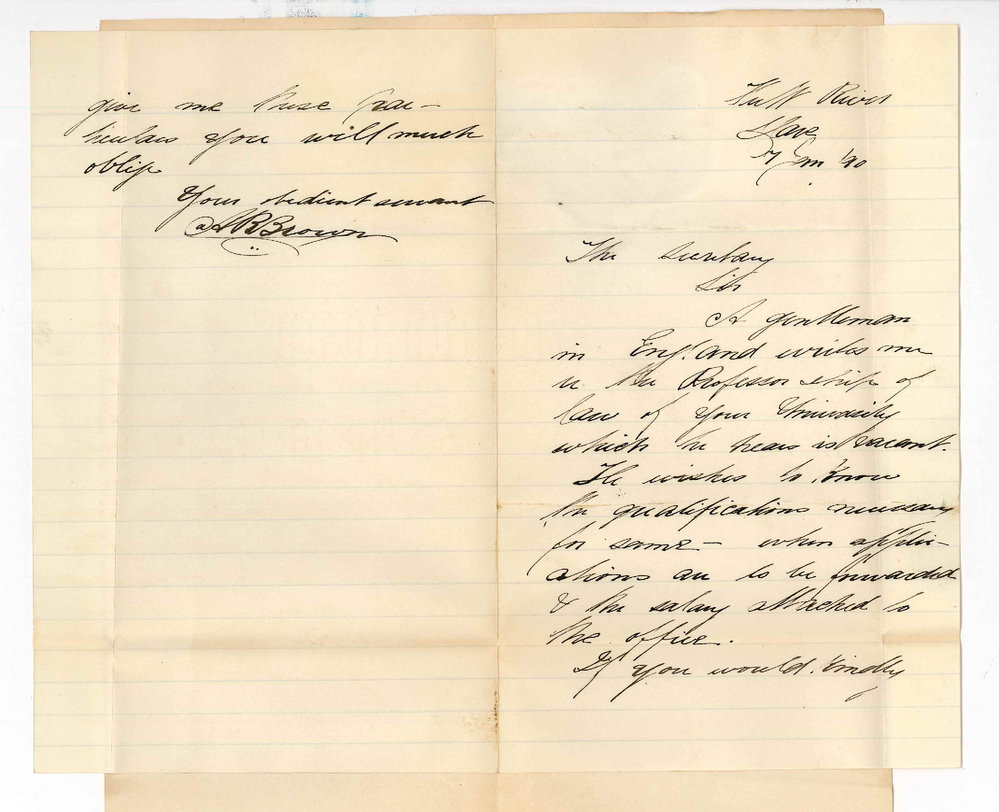 River
7 Jan '90
The Secretary
Sir
A gentleman
in England writes me
re the Professorship of
law of your University
which he hears is vacant.
He wishes to know
the qualifications necessary
for same – when appli-
cations are to be forwarded
& the salary attached to
the office.
If you would kindly
give me these par-
ticulars you will much
oblige
Your obedient servant
A R Brown